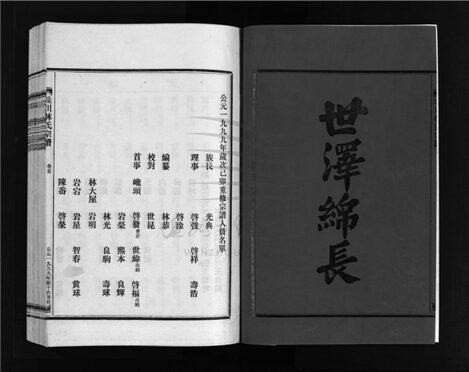 世澤綿長
公元一九九九年歲次己卯重修宗譜人員名單
族長 光典
理事 啓弢 啓祥 壽浩
啓淦
編纂 林恭
校對 世昆
首事 巉頭 啓發 世緯 啓福
岩榮 熙本 良輝
林光 良駒 壽球
林大屋 岩明
岩宕 岩星 智春 黃球
陳畲 啓榮
川林氏宗譜 卷首